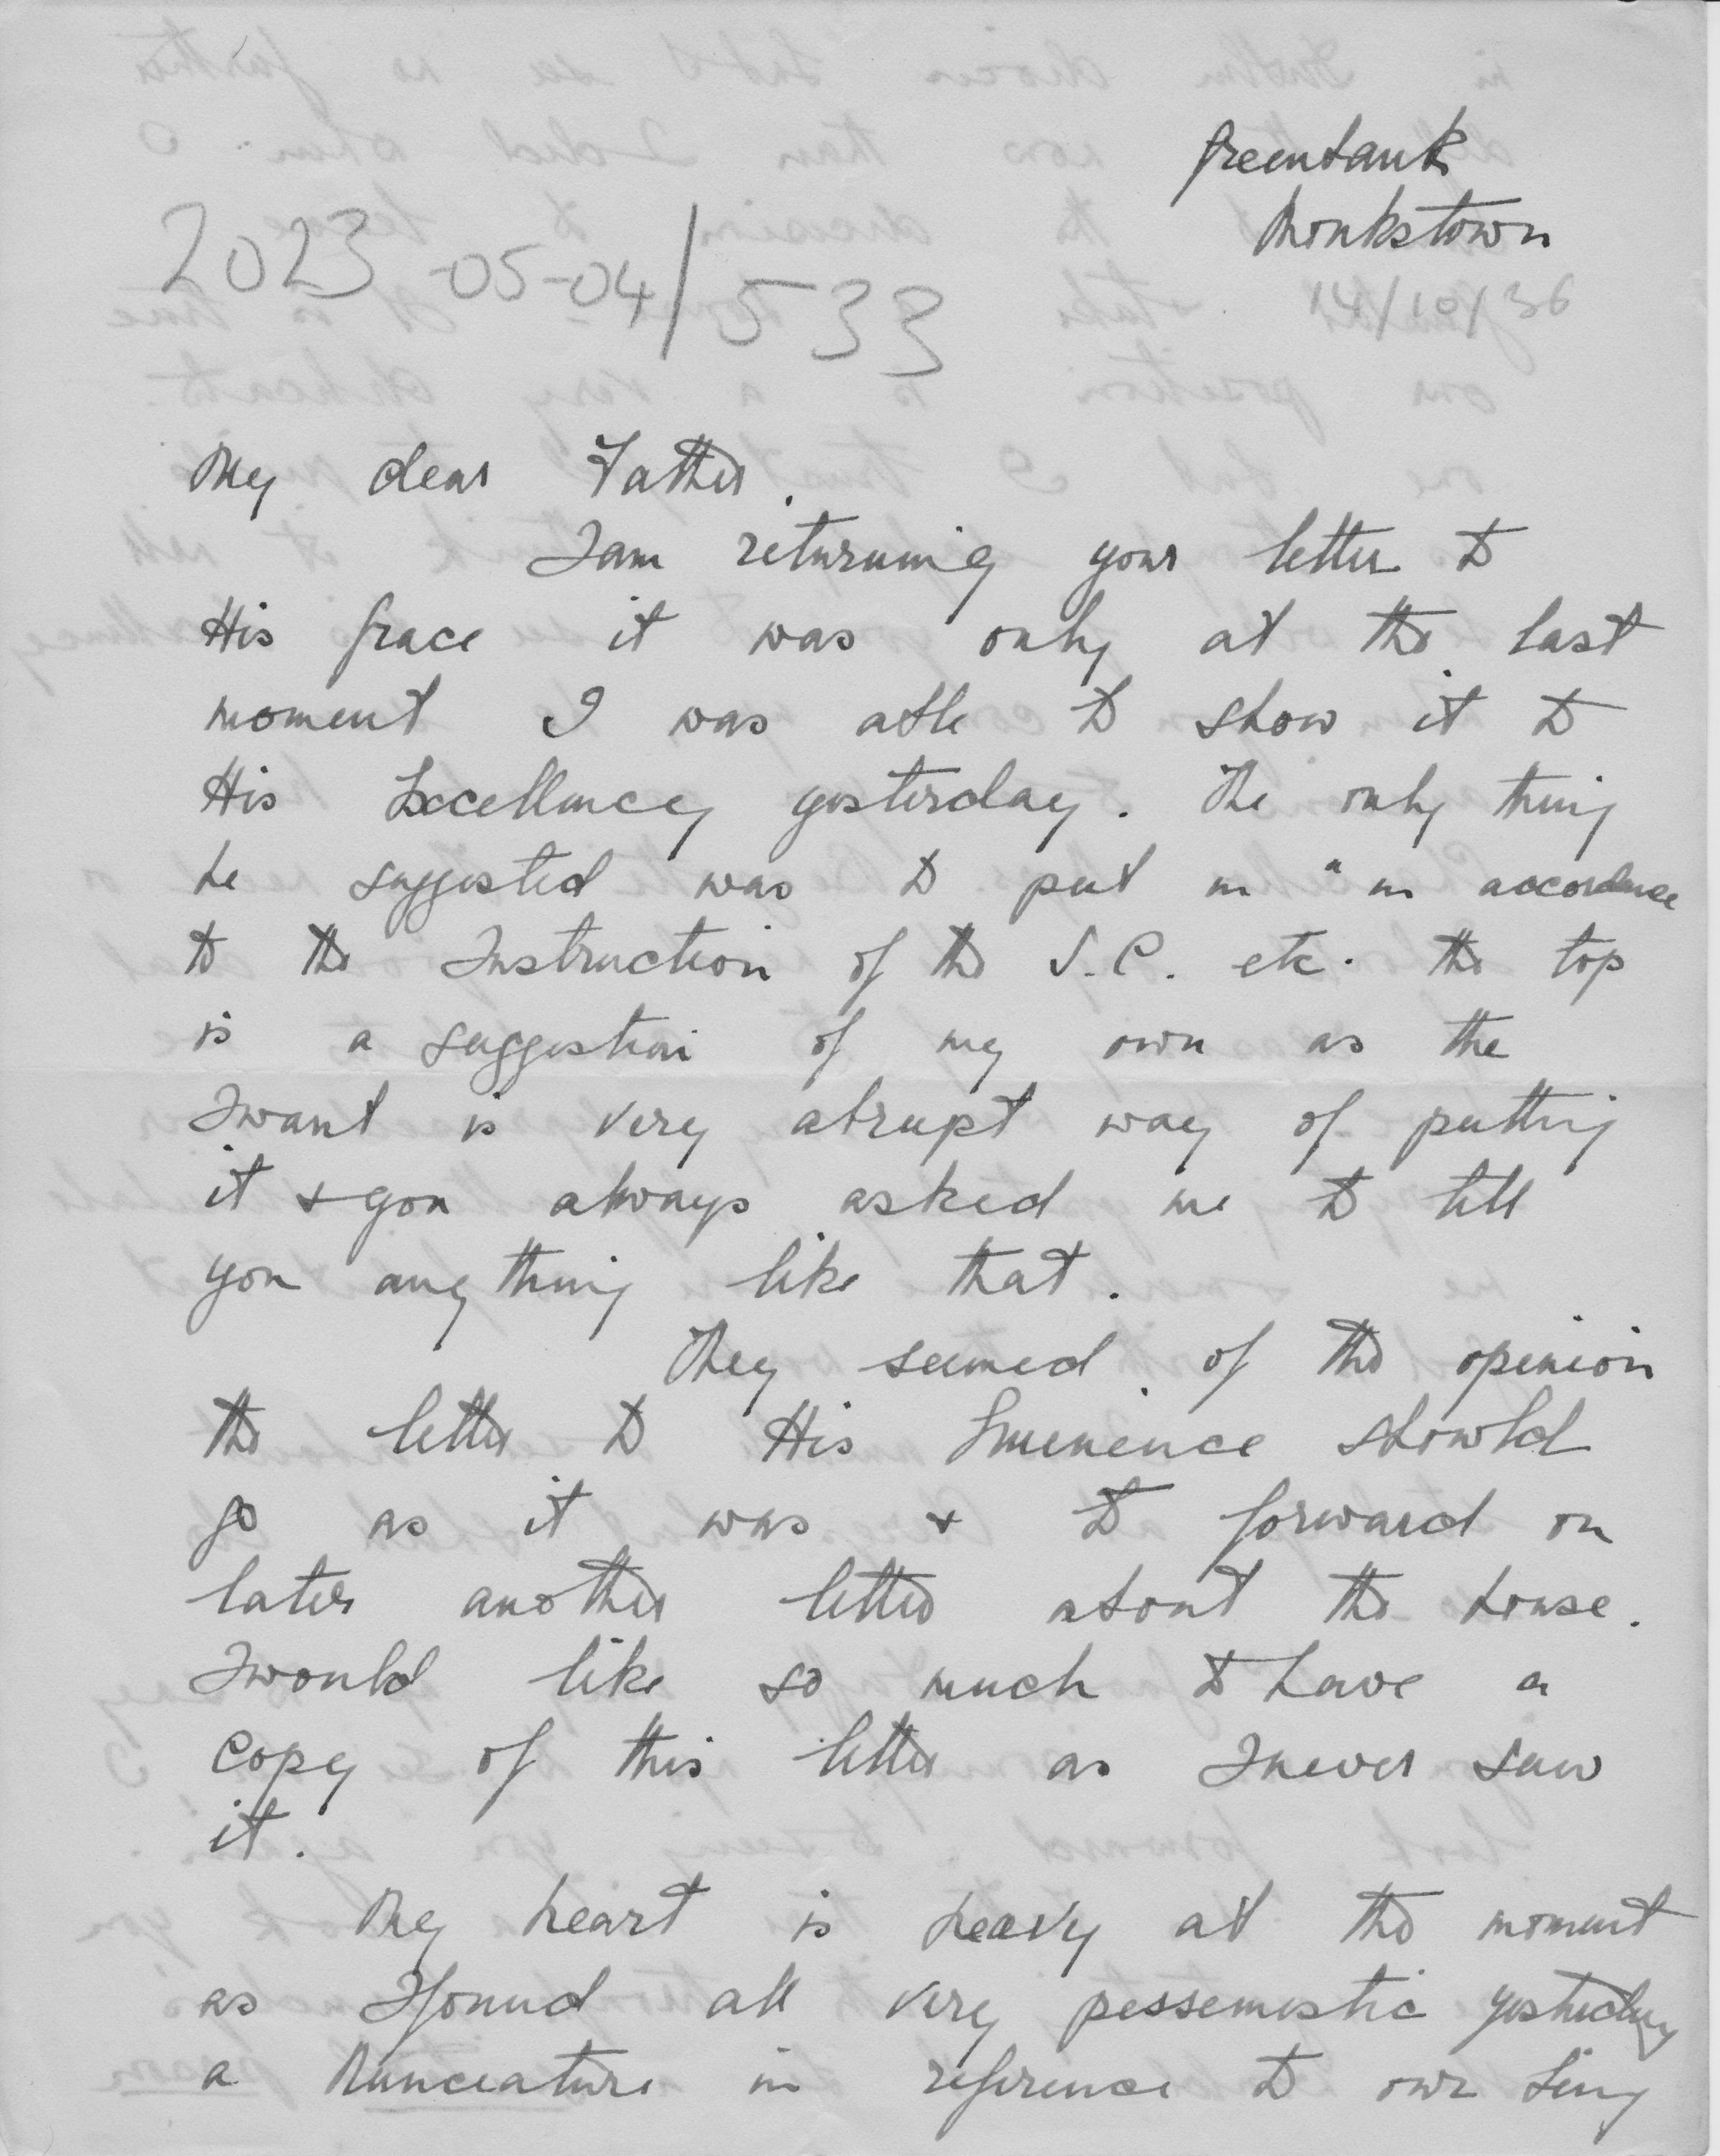 Greenbank
Monkstown
14/10/36
2023-05-04/533
My dear Father.
I am returning your letter to
His Grace it was only at the last
moment I was able to show it to
His Excellency yesterday. The only thing
he suggested was to put in "in accordance
to the Instruction of the S.C. etc. the top
is a suggestion of my own as the
I want is very abrupt way of putting
it & you always asked me to tell
you any thing like that.
They seemed of the opinion
the letter to His Eminence should
go as it was & to forward on
later another letter about the house.
I would like so much to have a
copy of this letter as I never saw
it.
My heart is heavy at the moment
as I found all very pessemestic yesterday
a Nunceature in reference to our being